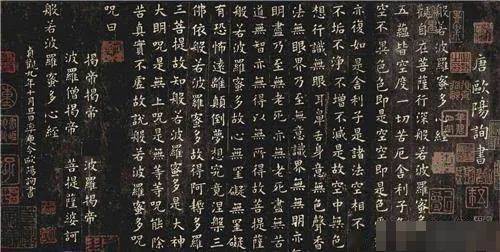 唐歐陽詢書
般若波羅蜜多心經
觀自在菩薩行深般若波羅蜜多
五蘊皆空度一切苦厄舍利子色
空空不異色色即是空空即是色
亦復如是舍利子是諸法空相不
不垢不淨不增不減是故空中無色
想行識無眼耳鼻舌身意無色聲香
法無眼界乃至無意識界無無明亦
明盡乃至無老死亦無老死盡無苦
道無智亦無得以無所得故菩提薩
般若波羅蜜多故心無罣礙無罣礙
有恐怖遠離顛倒夢想究竟涅槃三
佛依般若波羅蜜多故得阿耨多羅
三菩提故知般若波羅蜜多是大神
大明咒是無上咒是無等等咒能除
苦真實不虛故說般若波羅蜜多
咒曰
揭帝揭帝 波羅揭帝
波羅僧揭帝 菩提薩婆訶
般若波羅蜜多心經
貞觀九年十月旦日率更令歐陽詢書